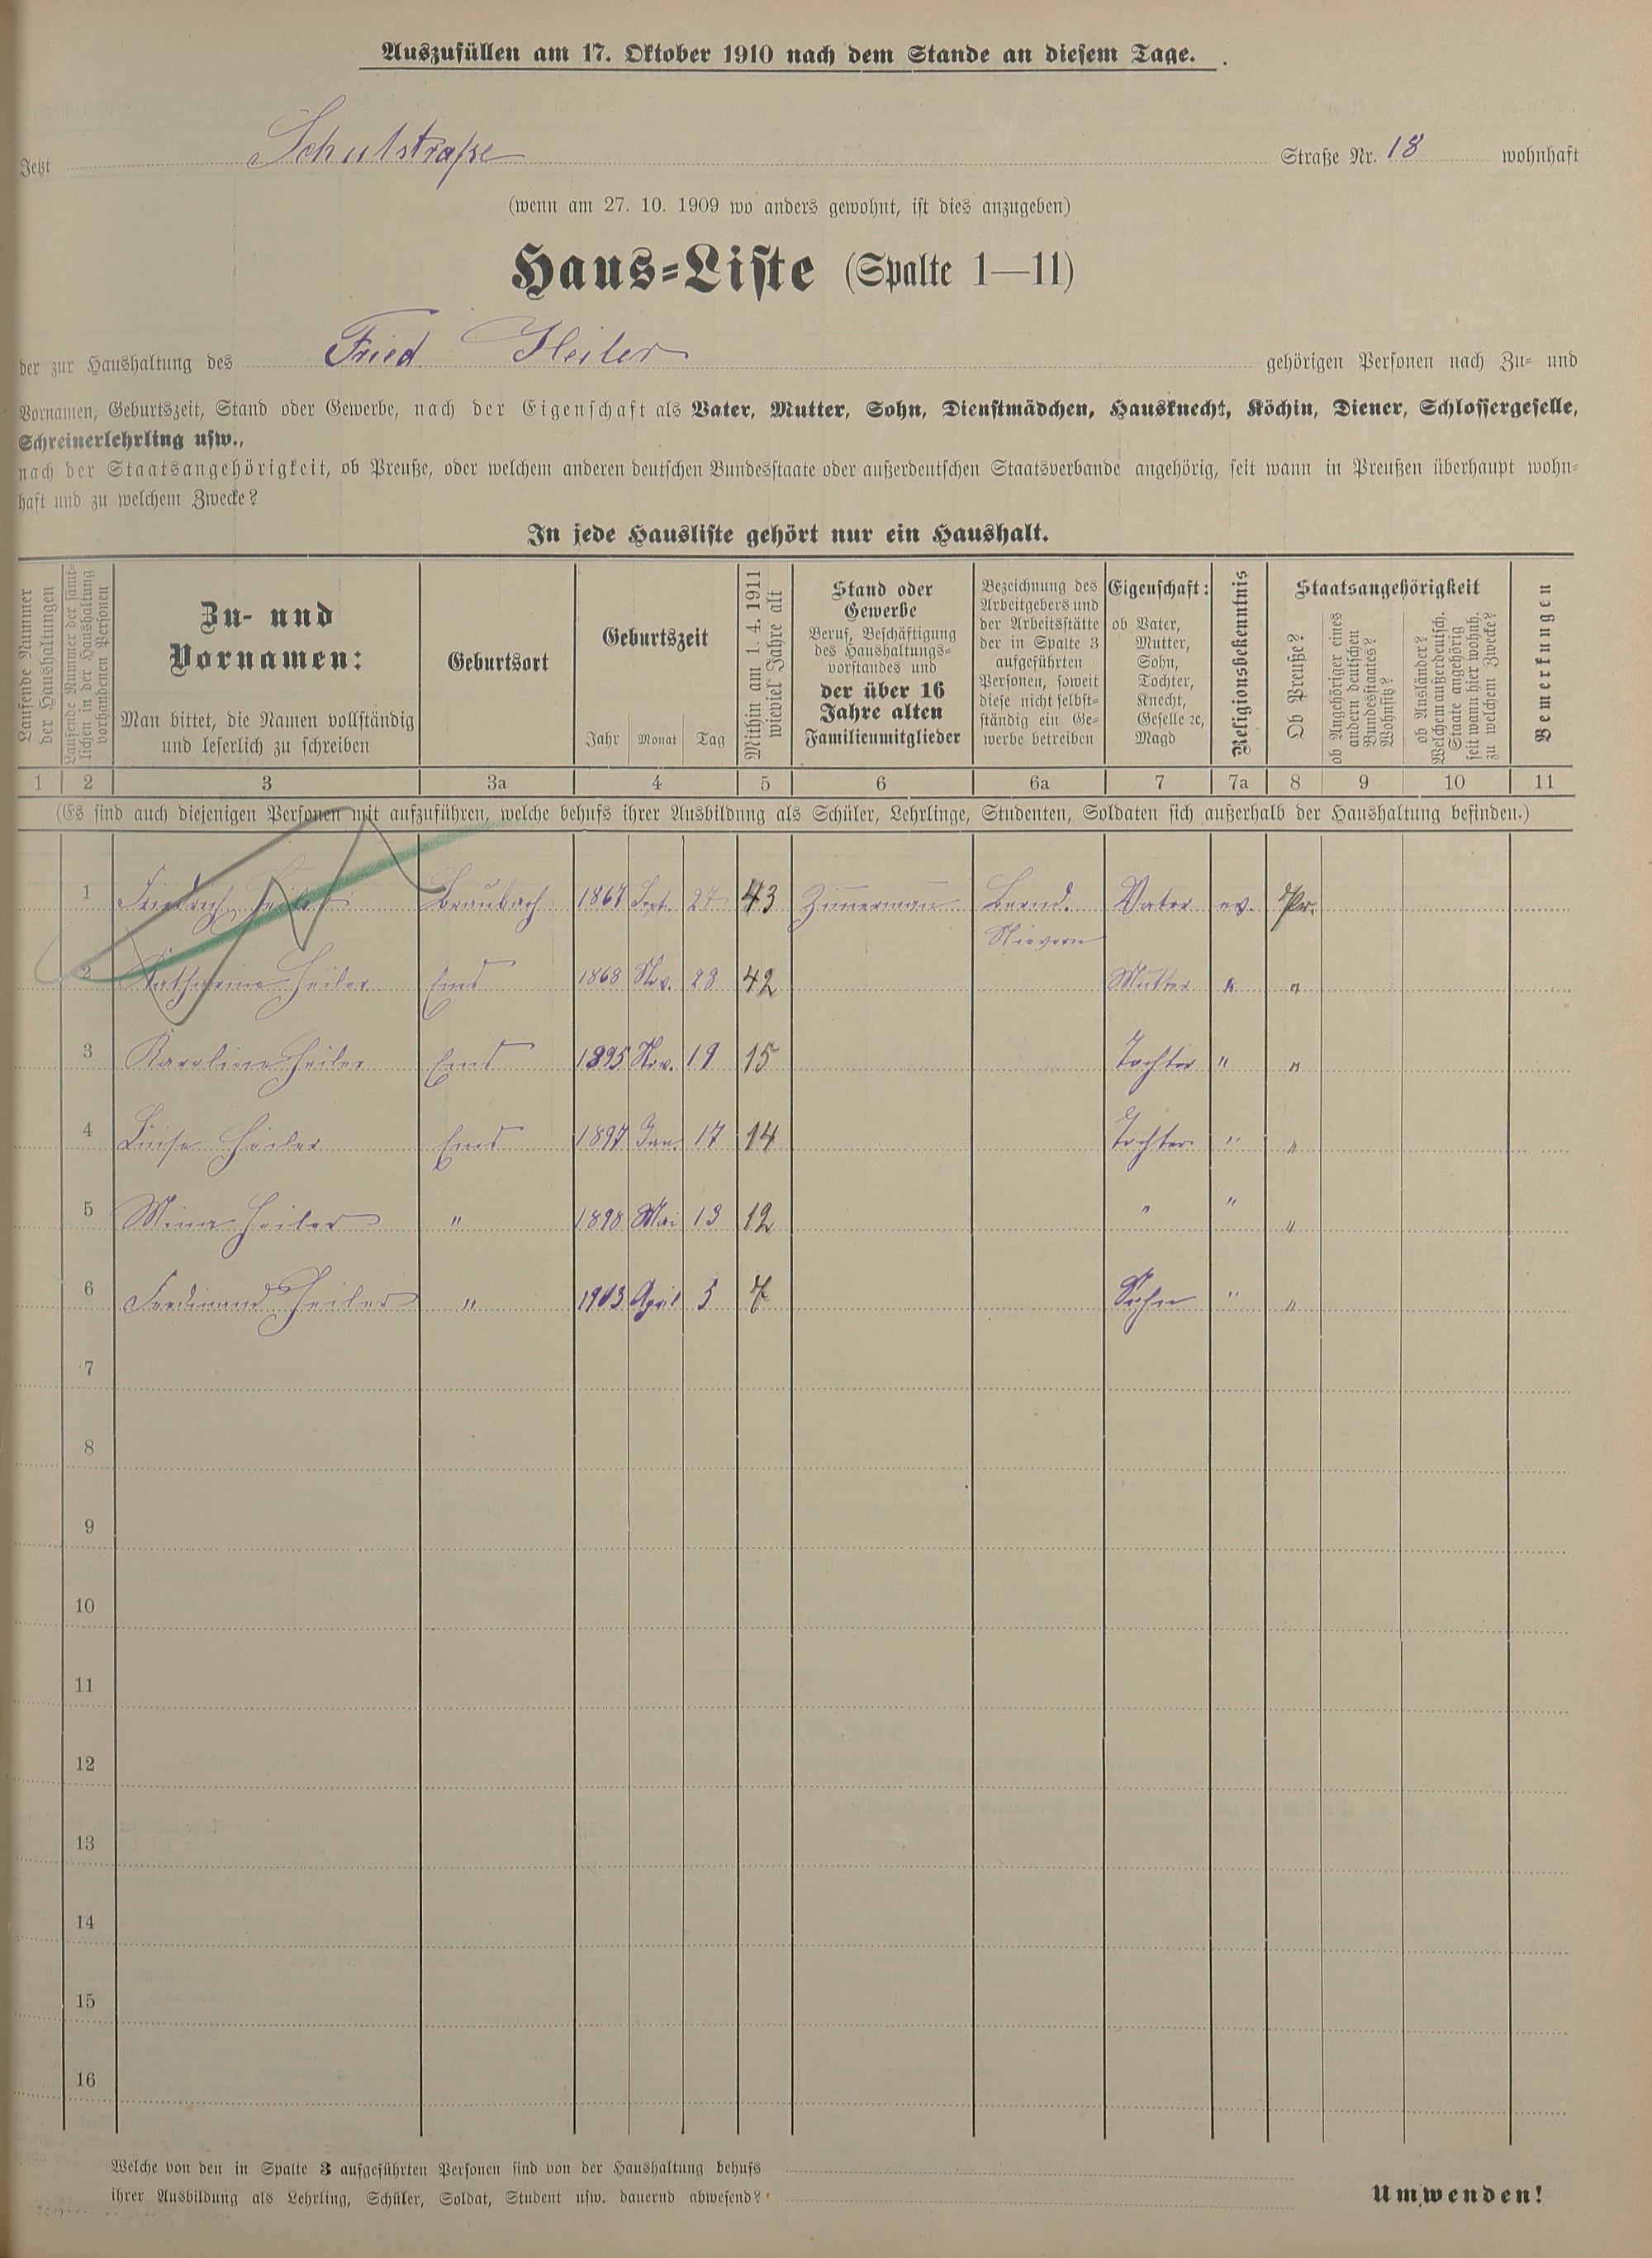 Auszufüllen am 17. Oktober 1910 nach dem Stande an diesem Tage.
Jetzt Schulstraße Straße Nr. 18 wohnhaft
(wenn am 27. 10. 1909 wo anders gewohnt, ist dies anzugeben)
Haus-Liste (Spalte 1—11)
der zur Haushaltung des Fried. Heiler gehörigen Personen nach Zu- und
Vornamen, Geburtszeit, Stand oder Gewerbe, nach der Eigenschaft als Vater, Mutter, Sohn, Dienstmädchen, Hausknecht, Köchin, Diener, Schlossergeselle,
Schreinerlehrling usw.,
nach der Staatsangehörigkeit, ob Preuße, oder welchem anderen deutschen Bundesstaate oder außerdeutschen Staatsverbande angehörig, seit wann in Preußen überhaupt wohn-
haft und zu welchem Zwecke?
In jede Hausliste gehört nur ein Haushalt.
Laufende Nummer
der Haushaltungen
Laufende Nummer der sämt-
lichen in der Haushaltung
vorhandenen Personen
Zu- und
Vornamen:
Man bittet, die Namen vollständig
und leserlich zu schreiben
Geburtsort
Geburtszeit
Jahr Monat Tag
Mithin am 1. 4. 1911
wieviel Jahre alt
Stand oder
Gewerbe
Beruf, Beschäftigung
des Haushaltungs-
vorstandes und
der über 16
Jahre alten
Familienmitglieder
Bezeichnung des
Arbeitgebers und
der Arbeitsstätte
der in Spalte 3
aufgeführten
Personen, soweit
diese nicht selbst-
ständig ein Ge-
werbe betreiben
Eigenschaft:
ob Vater,
Mutter,
Sohn,
Tochter,
Knecht,
Geselle ec,
Magd
Religionsbekenntnis
Staatsangehörigkeit
Ob Preuße?
ob Angehöriger eines
andern deutschen
Bundesstaates?
Wohnsitz?
ob Ausländer?
Welchem außerdeutsch.
Staate angehörig
seit wann hier wohnh.
zu welchem Zwecke?
Bemerkungen
1 2 3 3a 4 5 6 6a 7 7a 8 9 10 11
(Es sind auch diejenigen Personen mit aufzuführen, welche behufs ihrer Ausbildung als Schüler, Lehrlinge, Studenten, Soldaten sich außerhalb der Haushaltung befinden.)
1 Friedrich Heiler Braubach 1867 Sept. 27 43 Zimmermann Bernd. Vater ev. Pr.
Nievern
2 Katharina Heiler Ems 1868 Nov. 28 42 Mutter k "
3 Karoline Heiler Ems 1895 Nov. 19 15 Tochter " "
4 Luise Heiler Ems 1897 Jan. 17 14 Tochter " "
5 Mina Heiler " 1898 Mai 13 12 " " "
6 Ferdinand Heiler " 1903 April 5 7 Sohn " "
7
8
9
10
11
12
13
14
15
16
Welche von den in Spalte 3 aufgeführten Personen sind von der Haushaltung behufs
ihrer Ausbildung als Lehrling, Schüler, Soldat, Student usw. dauernd abwesend?
Umwenden!